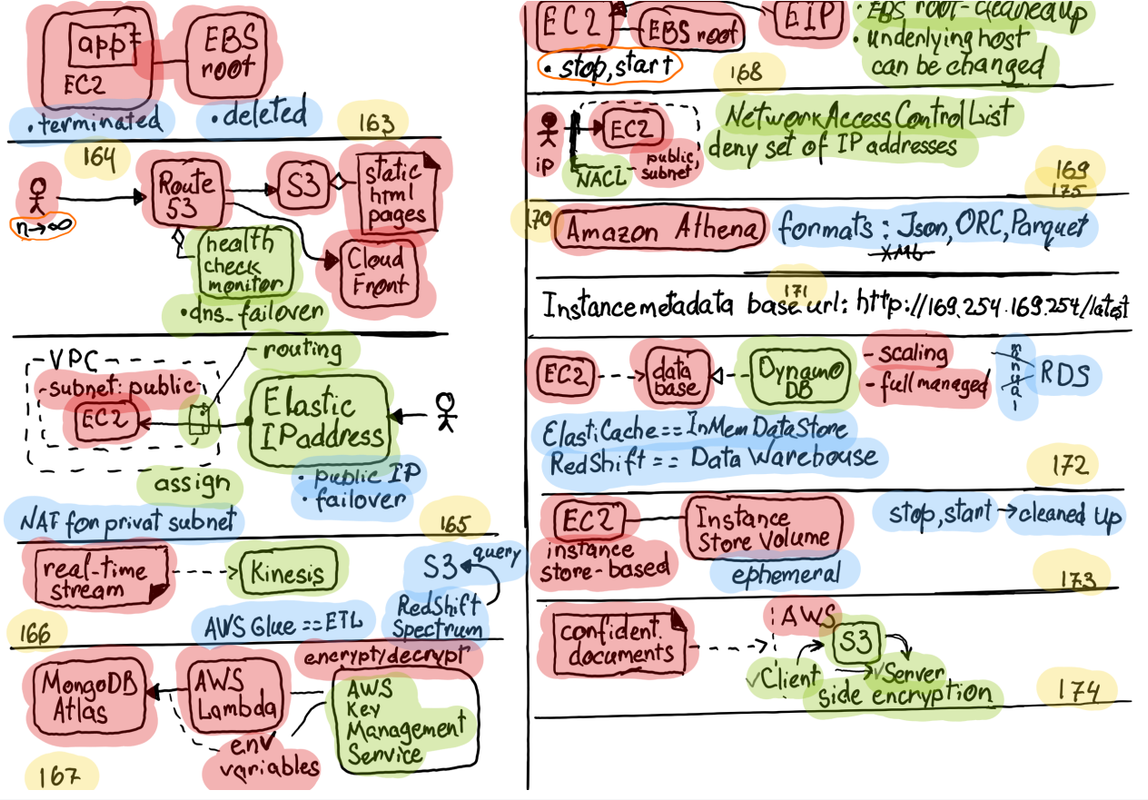 app
EC2
EBS
root
• terminated
• deleted
163
164
Route
53
S3
static
html
pages
n→∞
health
check
monitor
Cloud
Front
• dns-failover
VPC
subnet: public
EC2
routing
Elastic
IP address
assign
• public IP
• failover
NAT for privat subnet
165
real-time
stream
Kinesis
S3
query
AWS Glue == ETL
RedShift
Spectrum
166
encrypt/decrypt
MongoDB
Atlas
AWS
Lambda
AWS
Key
Management
Service
env
variables
167
EC2
EBS root
EIP
• EBS root-cleaned up
• underlying host
can be changed
• stop, start
168
ip
EC2
NACL
public,
subnet
Network Access Control List
deny set of IP addresses
169
175
170
Amazon Athena
formats : Json, ORC, Parquet
XML
171
Instance metadata base url: http://169.254.169.254/latest
EC2
data
base
Dynamo
DB
- scaling
- full managed
manual
RDS
ElastiCache == InMem DataStore
RedShift == Data Warehouse
172
EC2
instance
store-based
Instance
Store Volume
ephemeral
stop, start → cleaned up
173
confident.
documents
AWS
S3
✓Client
✓Server
side encryption
174